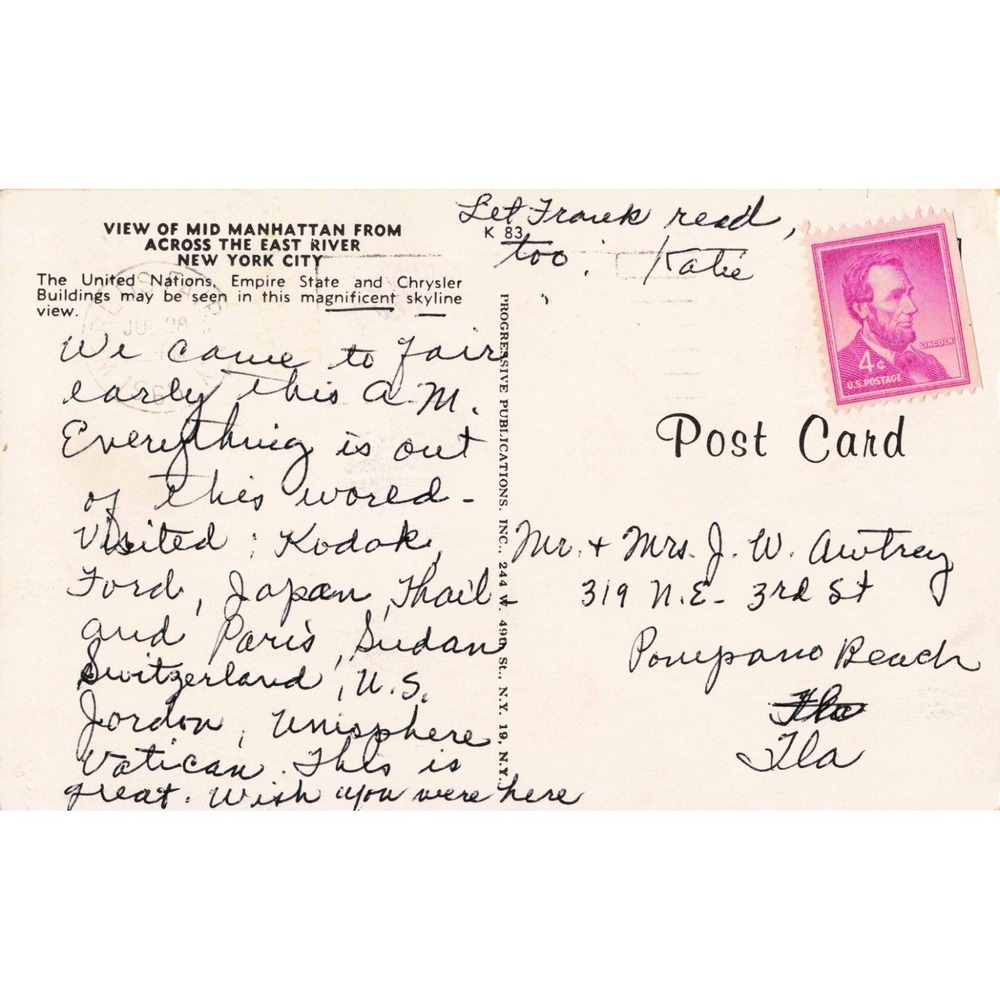 VIEW OF MID MANHATTAN FROM
ACROSS THE EAST RIVER
NEW YORK CITY
The United Nations, Empire State and Chrysler
Buildings may be seen in this magnificent skyline
view.
We came to Fair
early this A.M.
Everything is out
of this world -
Visited : Kodak,
Ford, Japan, Thail-
and Paris, Sudan
Switzerland, U.S.
Jordon, Unisphere
Vatican. This is
great. Wish you were here
Let Frank read,
too. Katie
K 83
PROGRESSIVE PUBLICATIONS, INC., 244 W. 49th St., N.Y. 19, N.Y.
LINCOLN
4¢
U.S. POSTAGE
Post Card
Mr. + Mrs. J. W. Awtrey
319 N.E. - 3rd St
Pompano Beach
Fla
Fla